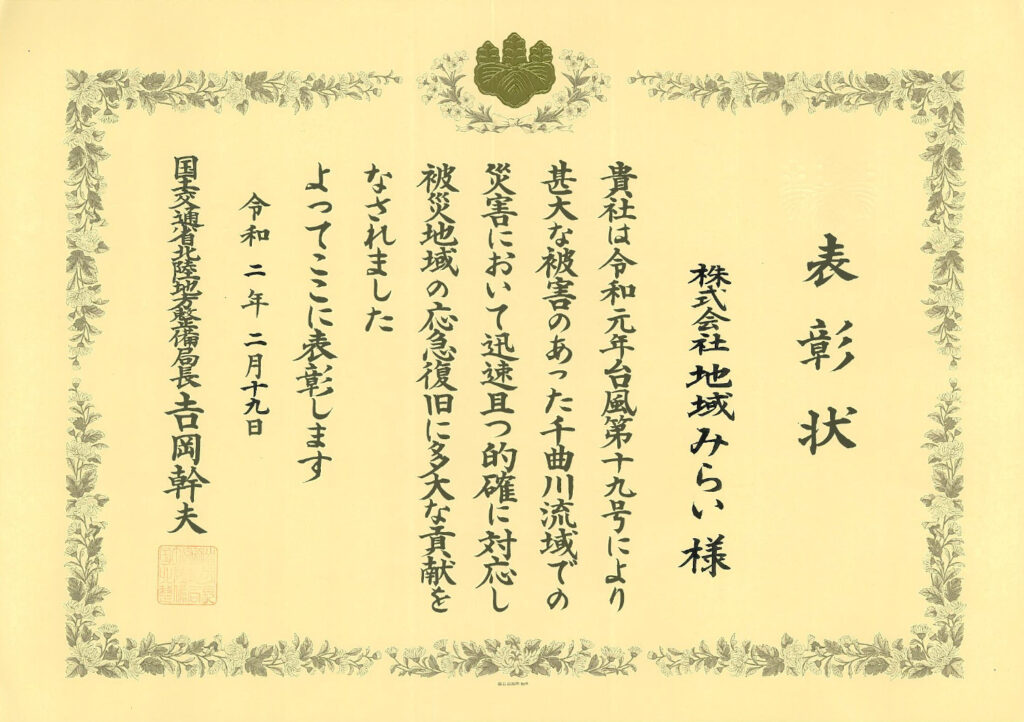 表彰状
株式会社地域みらい様
貴社は令和元年台風第十九号により
甚大な被害のあった千曲川流域での
災害において迅速且つ的確に対応し
被災地域の応急復旧に多大な貢献を
なされました
よってここに表彰します
令和二年二月十九日
国土交通省北陸地方整備局長 吉岡幹夫